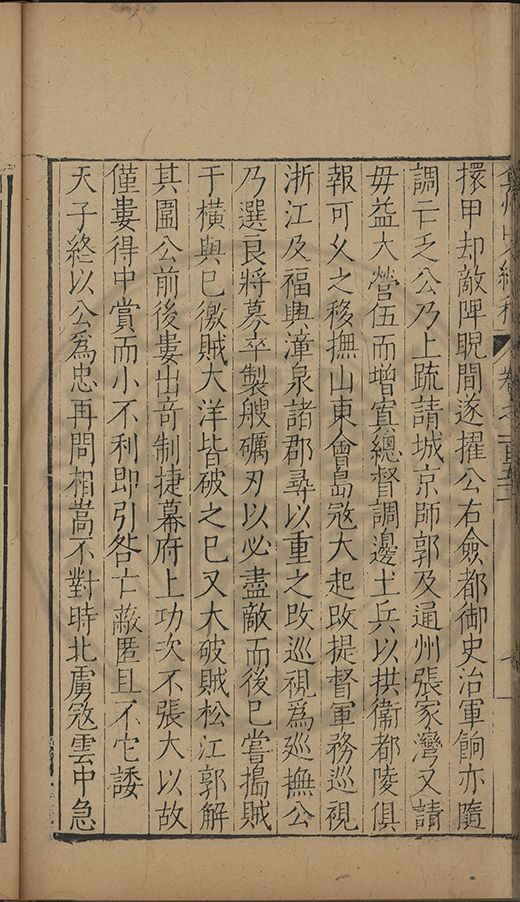 擐甲却敵陴睨間遂擢公右僉都御史治軍餉亦隨
調亡乏公乃上疏請城京師郭及通州張家灣又請
毋益大營伍而增寘總督調邊土兵以拱衛都陵俱
報可乆之移撫山東會島寇大起改提督軍務巡視
浙江及福興漳泉諸郡尋以重之改巡視為廵撫公
乃選良將募卒製艘礪刃以必盡敵而後已嘗搗賊
于橫與已徼賊大洋皆破之已又大破賊松江郭解
其圍公前後婁出竒制捷幕府上功次不張大以故
僅婁得中賞而小不利即引咎亡敢匿且不它諉
天子終以公為忠再問相嵩不對時北虜寇雲中急